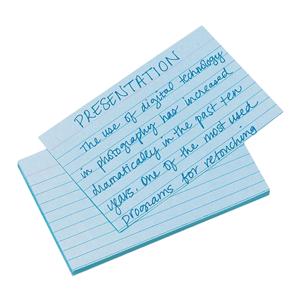 PRESENTATION
The use of digital technology
in photography has increased
dramatically in the past ten
years. One of the most used
programs for retouching